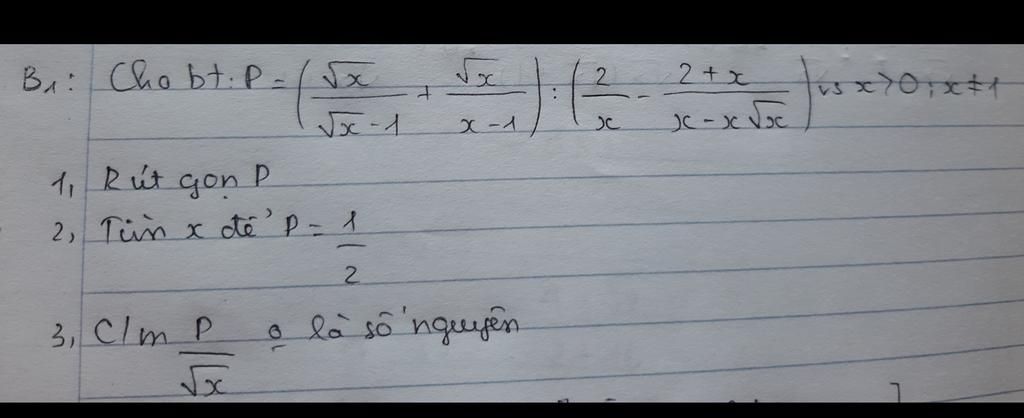 B1: Cho bt: P = (√x/(√x-1) + √x/(x-1)) : (2/x - (2+x)/(x-x√x)) vs x>0; x≠1
1, Rút gọn P
2, Tìm x để P = 1/2
3, C/m P/√x ọ là số nguyên